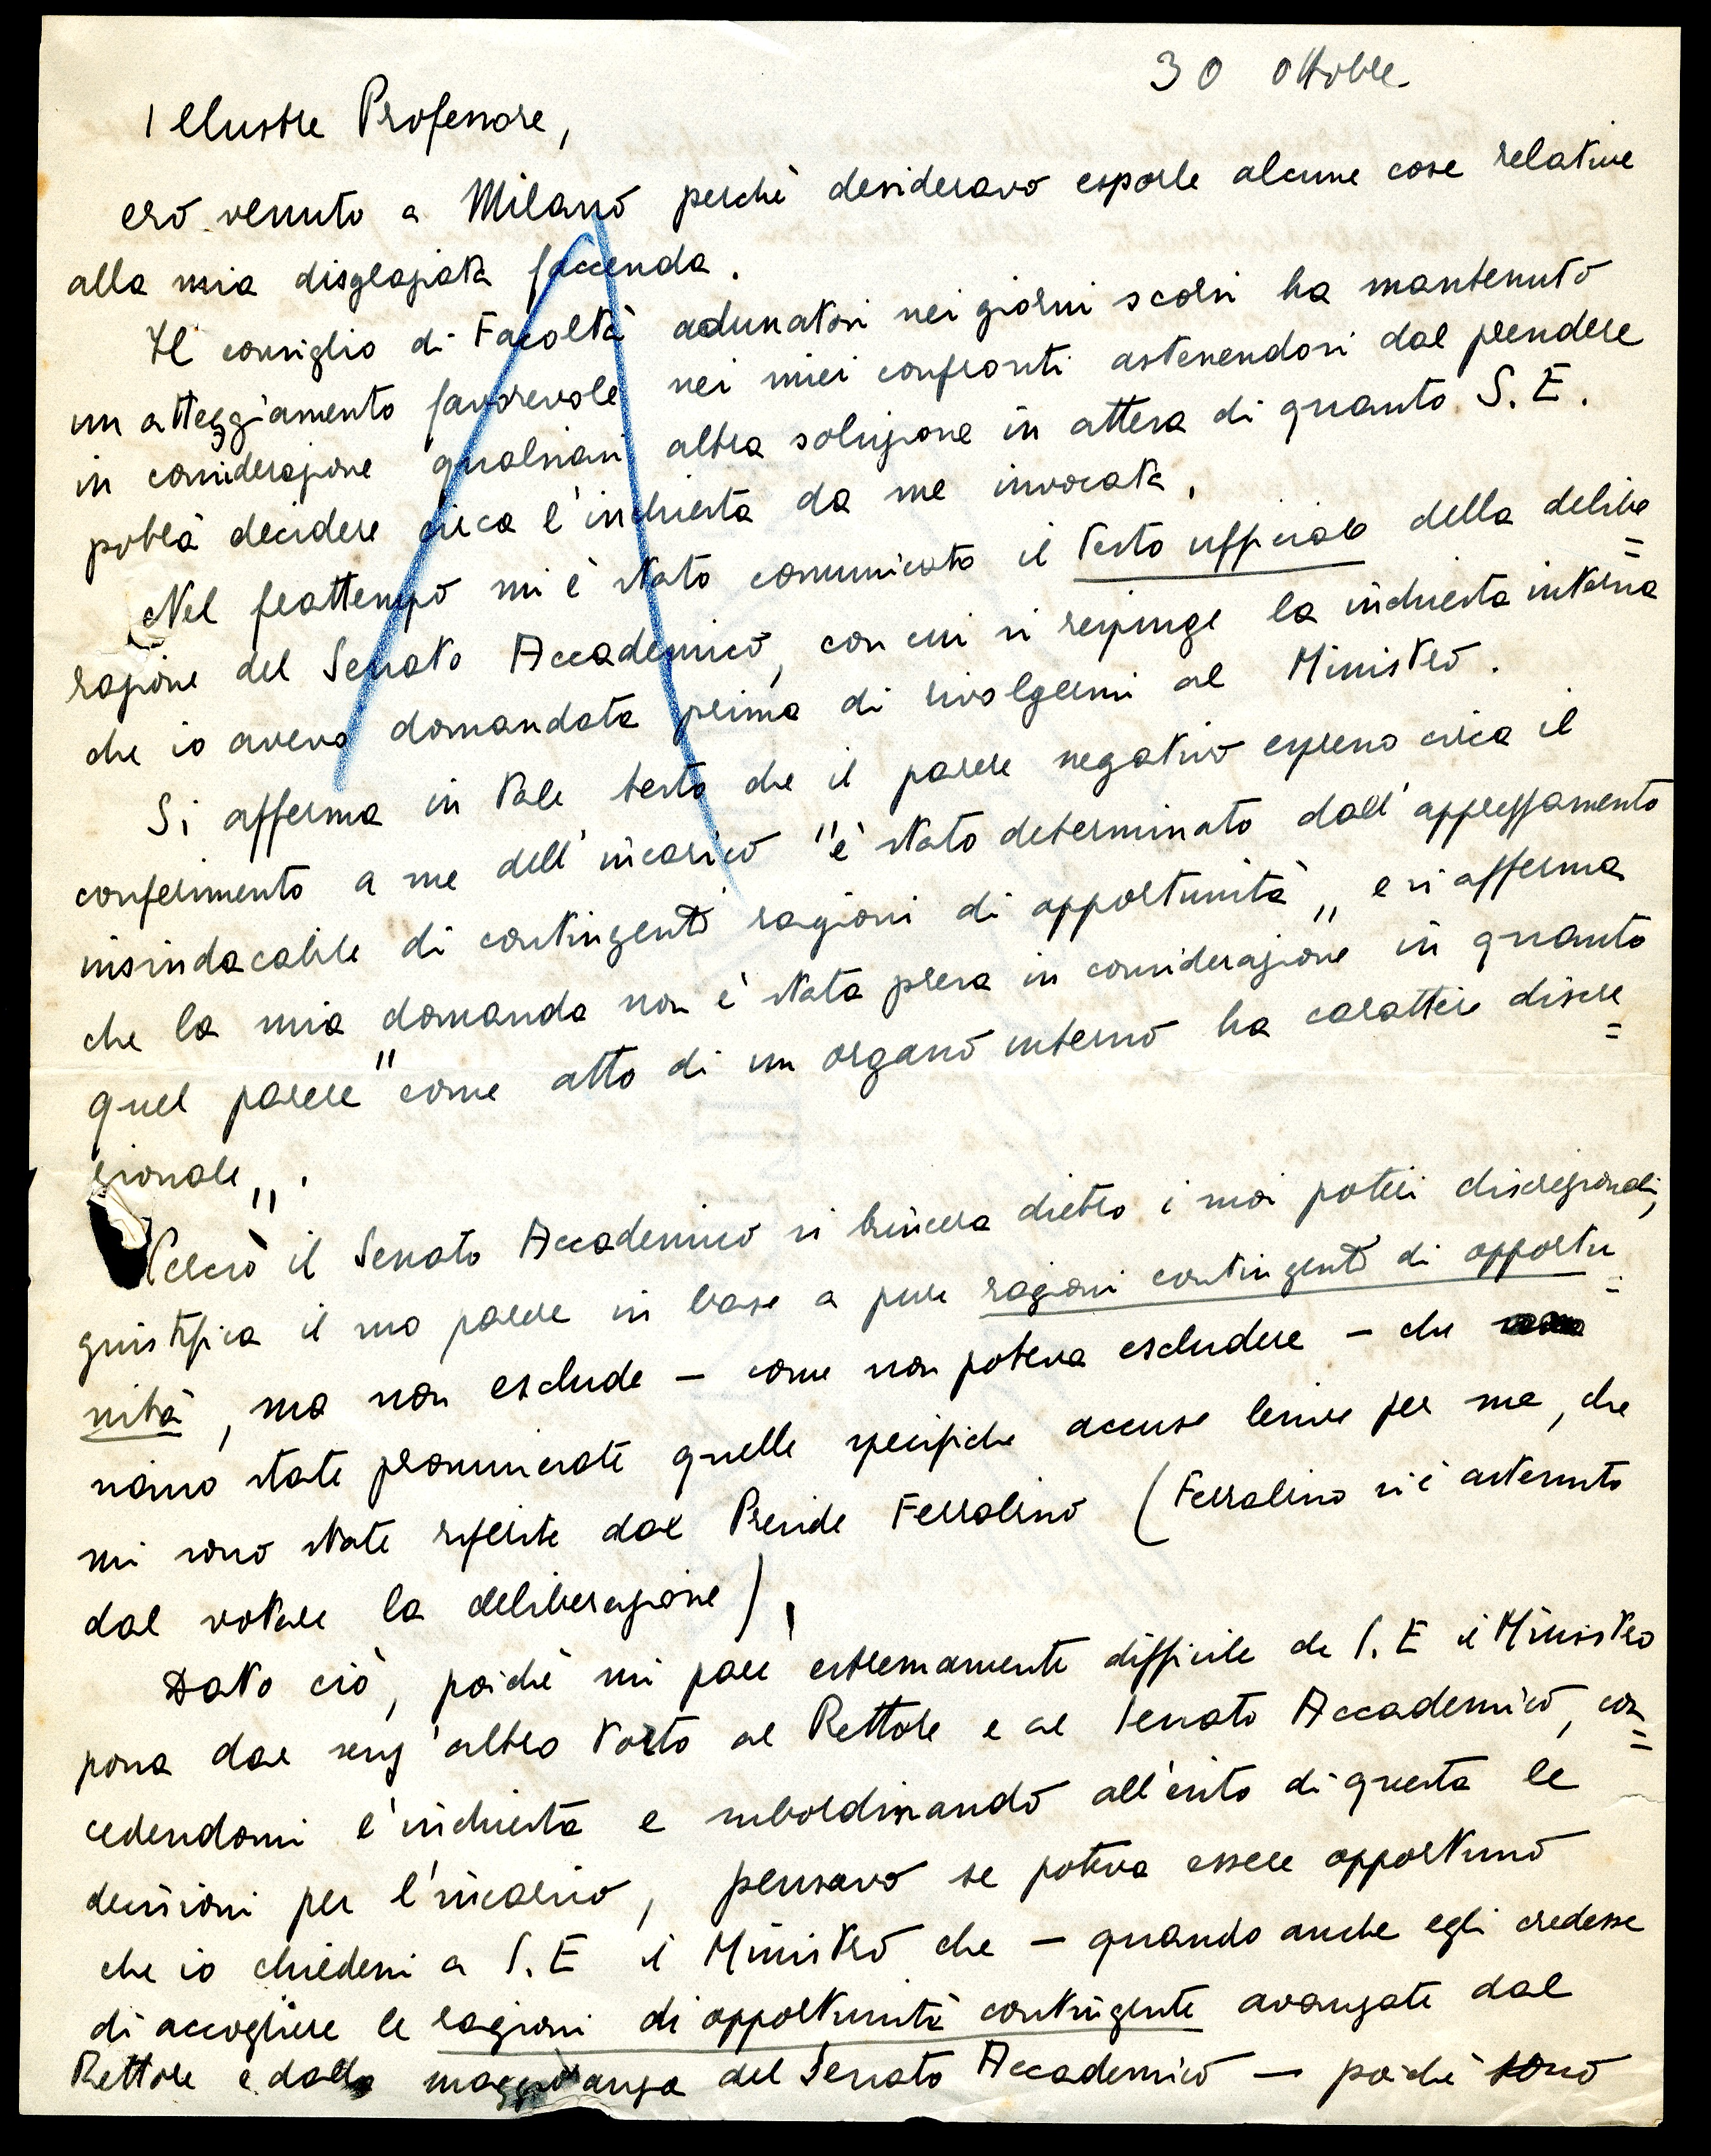 30 Ottobre
Illustre Professore,
ero venuto a Milano perchè desideravo esporle alcune cose relative
alla mia disgraziata faccenda.
Il consiglio di Facoltà adunatosi nei giorni scorsi ha mantenuto
un atteggiamento favorevole nei miei confronti astenendosi dal prendere
in considerazione qualsiasi altra soluzione in attesa di quanto S. E.
potrà decidere circa l'inchiesta da me invocata.
Nel frattempo mi è stato comunicato il testo ufficiale della delibe=
razione del Senato Accademico, con cui si respinge la inchiesta interna
che io avevo domandata prima di rivolgermi al Ministro.
Si afferma in tale testo che il parere negativo espresso circa il
conferimento a me dell'incarico "è stato determinato dall'apprezzamento
insindacabile di contingenti ragioni di opportunità„ e si afferma
che la mia domanda non è stata presa in considerazione in quanto
quel parere "come atto di un organo interno ha carattere discre=
zionale„.
Perciò il Senato Accademico si trincera dietro i suoi poteri discrezionali,
giustifica il suo parere in base a pure ragioni contingenti di opportu=
nità, ma non esclude – come non poteva escludere – che
siano state pronunciate quelle specifiche accuse lesive per me, che
mi sono state riferite dal Preside Ferrabino (Ferrabino si è astenuto
dal votare la deliberazione).
Dato ciò, poichè mi pare estremamente difficile che S. E il Ministro
possa dar senz'altro torto al Rettore e al Senato Accademico, con=
cedendomi l'inchiesta e subordinando all'esito di questa le
decisioni per l'incarico, pensavo se poteva essere opportuno
che io chiedessi a S. E il Ministro che – quando anche egli credesse
di accogliere le ragioni di opportunità contingente avanzate dal
Rettore e dalla maggioranza del Senato Accademico – poichè sono